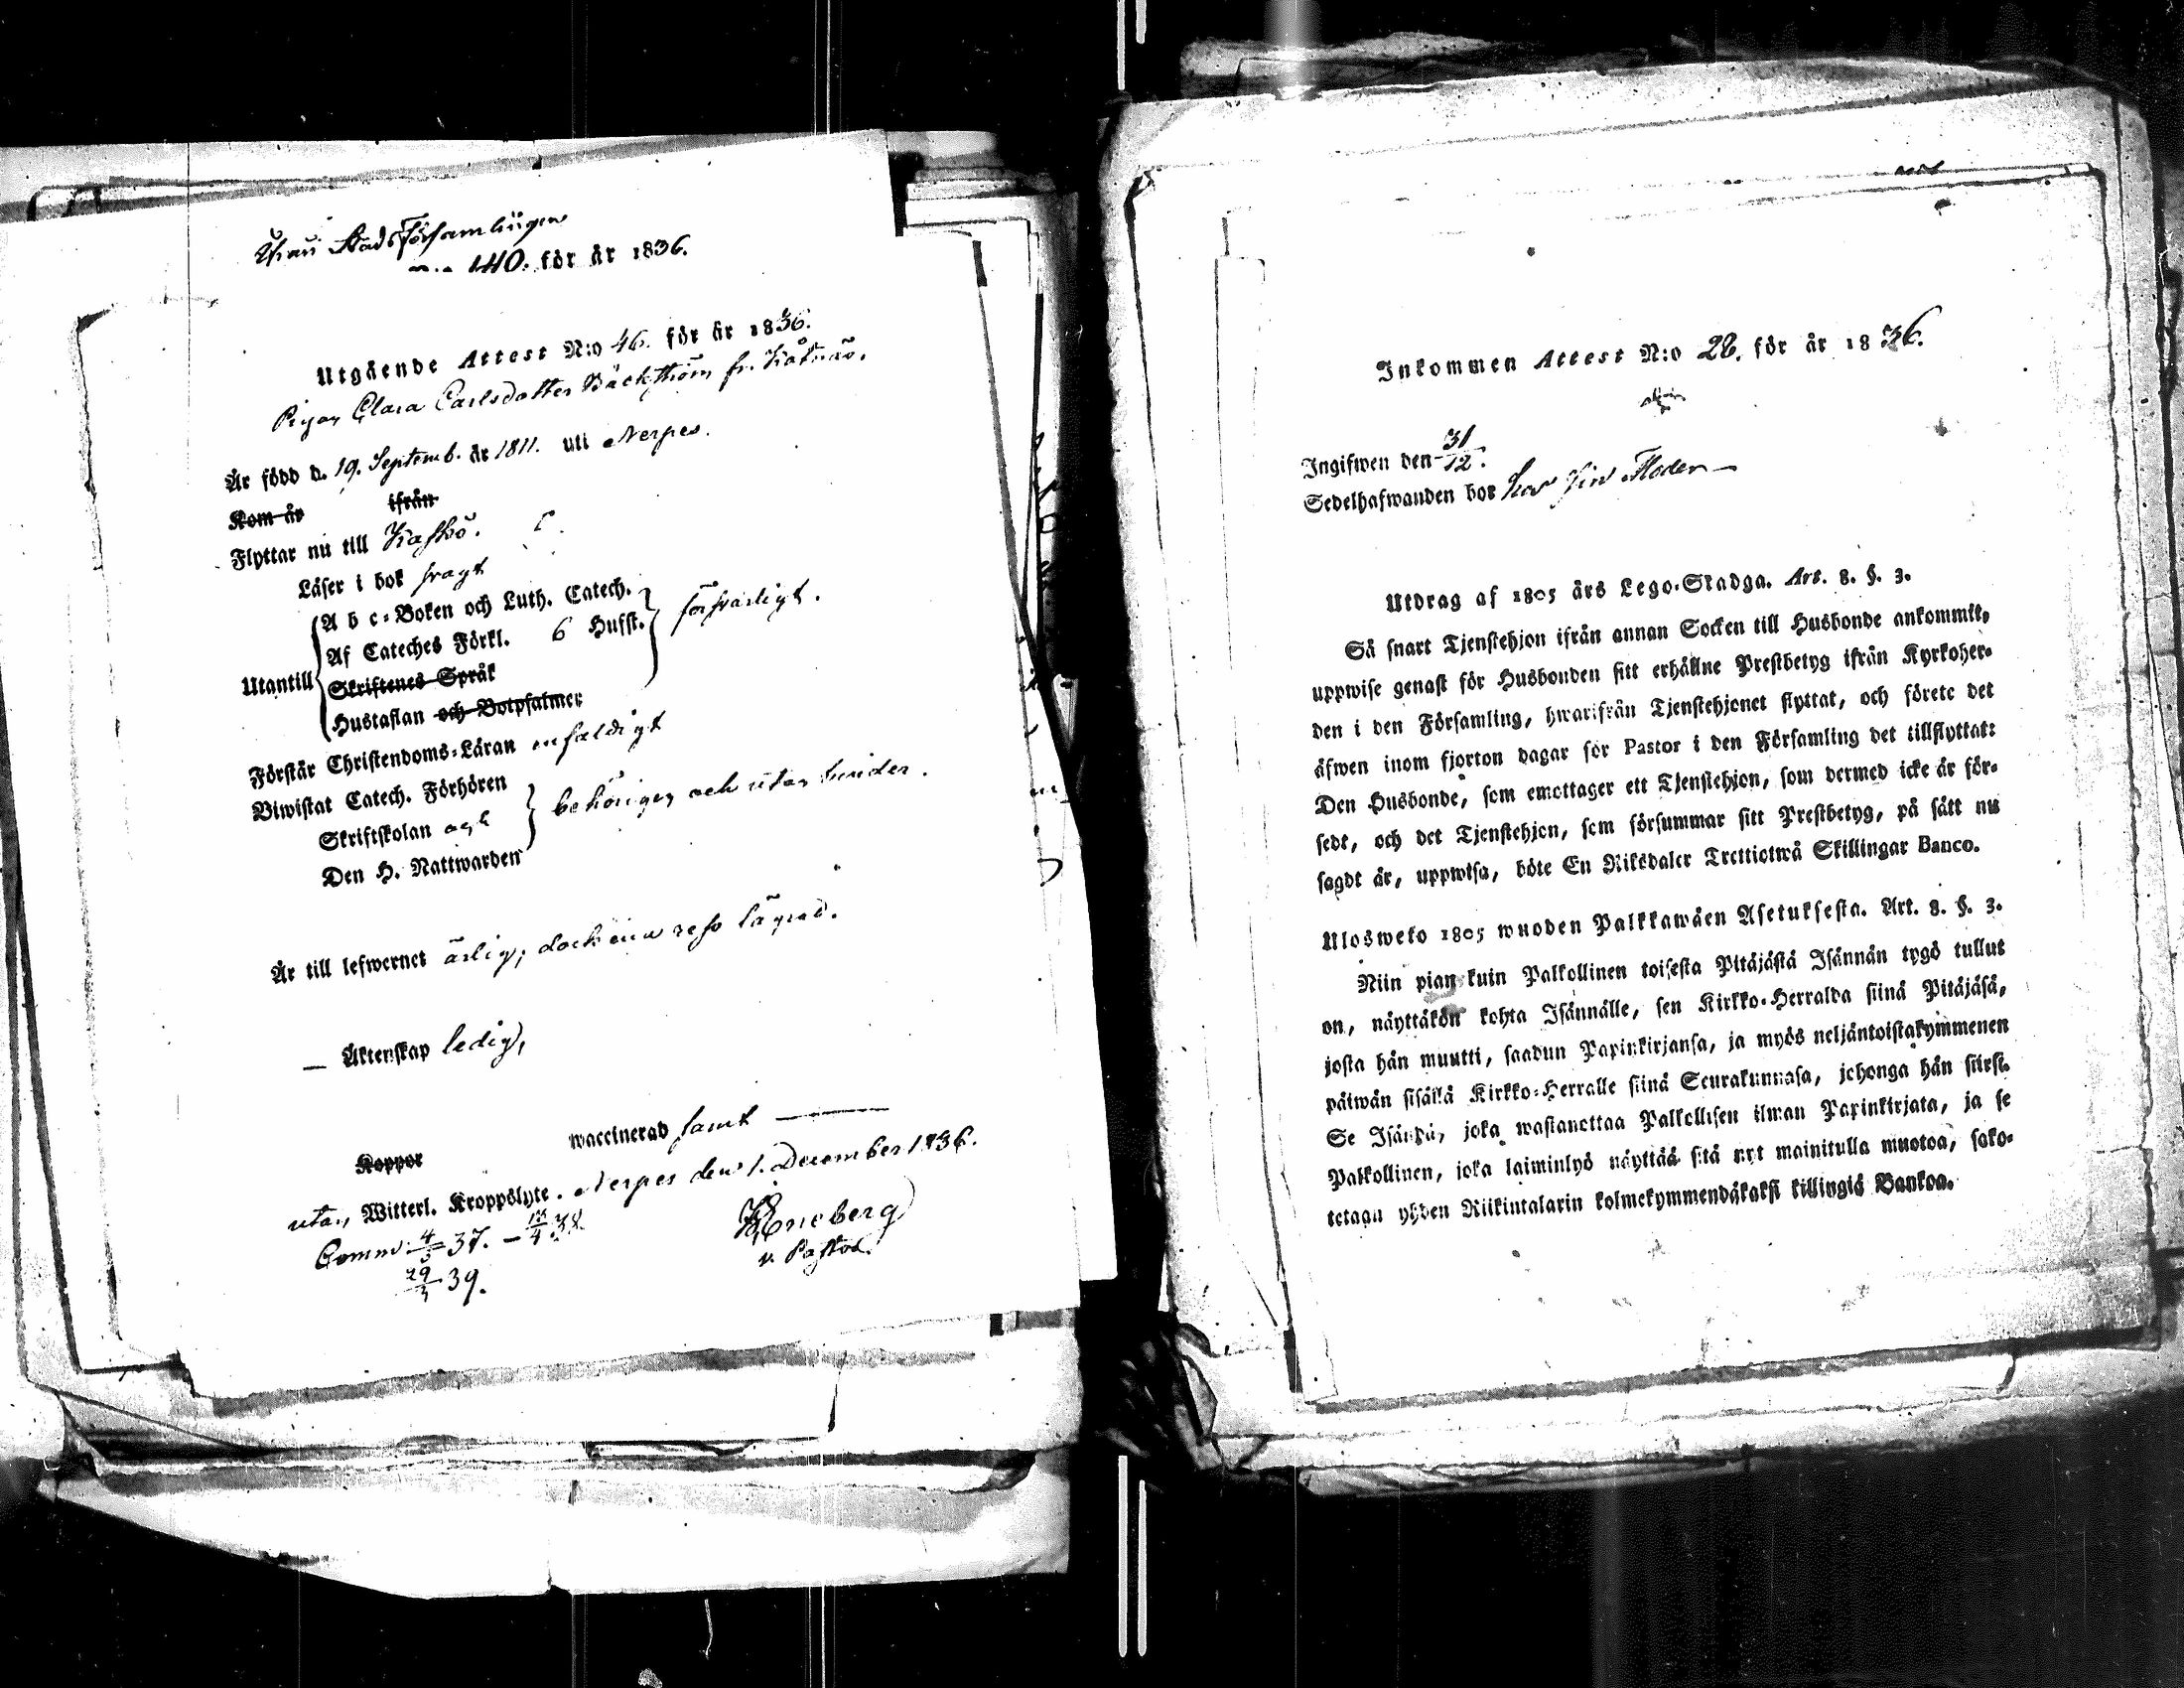 Stads Församlingen
140. för år 1836.
Utgående Attest N:o 46. för år 1836.
Pigan Clara Carlsdotter Bäckström fr. Kåtnäs.
Är född d. 19. Septemb. år 1811. uti Nerpes.
Kom år ifrån
Flyttar nu till Kaskö.
Läser i bok svagt
A b c-Boken och Luth. Catech.
Af Cateches Förkl. 6 Hufst. försvarligt.
Utantill
Skriftenes Språk
Hustaflan och Botpsalmer
Förstår Christendoms-Läran enfaldigt
Biwistat Catech. Förhören
Skriftskolan och behörigen och utan hinder.
Den H. Nattwarden
Är till lefwernet ärlig, dock en resa lägrad.
— Äktenskap ledig,
Koppor waccinerad samt —
utan Witterl. Kroppslyte. Nerpes den 1. December 1836.
Comm. 4/5 37. – 38.
39.
v. Pastor.
Inkommen Attest N:o 28. för år 1836.
Ingifwen den 31/12.
Sedelhafwanden bor hos sin Moder —
Utdrag af 1805 års Lego-Stadga. Art. 8. §. 3.
Så snart Tjenstehjon ifrån annan Socken till Husbonde ankommit,
uppwise genast för Husbonden sitt erhållne Prestbetyg ifrån Kyrkoher-
den i den Församling, hwarifrån Tjenstehjonet flyttat, och förete det
äfwen inom fjorton dagar för Pastor i den Församling det tillflyttat:
Den Husbonde, som emottager ett Tjenstehjon, som dermed icke är för-
sedt, och det Tjenstehjon, som försummar sitt Prestbetyg, på sätt nu
sagdt är, uppwisa, böte En Riksdaler Trettiotwå Skillingar Banco.
Ulosweto 1805 wuoden Palkkawäen Asetuksesta. Art. 8. §. 3.
Niin pian kuin Palkollinen toisesta Pitäjästä Isännän tygö tullut
on, näyttäkön kohta Isännälle, sen Kirkko-Herralda siinä Pitäjäsä,
josta hän muutti, saadun Papinkirjansa, ja myös neljäntoistakymmenen
päiwän sisällä Kirkko-Herralle siinä Seurakunnasa, johonga hän siirst.
Se Isändä, joka wastanottaa Palkollisen ilman Papinkirjata, ja se
Palkollinen, joka laiminlyö näyttää sitä nyt mainitulla muotoa, sako-
tetaan yhden Riikintalarin kolmekymmendäkaksi killingiä Bankoa.